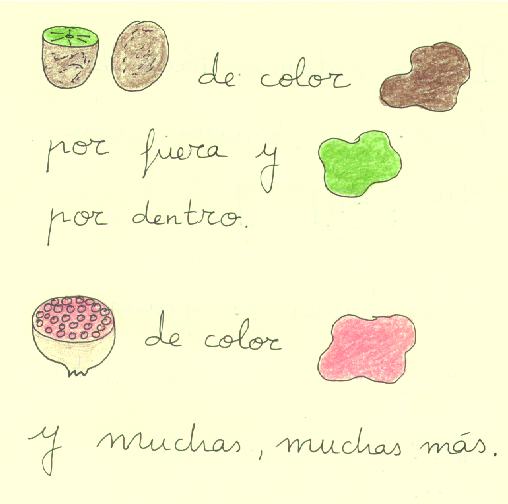 de color
por fuera y
por dentro.
de color
y muchas, muchas más.